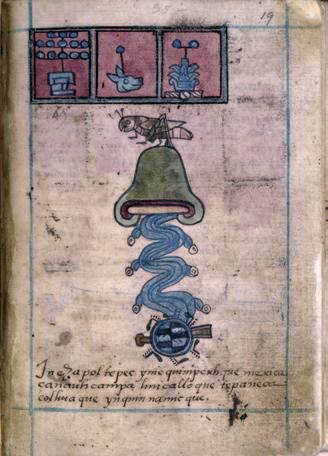 35 19
In chapoltepec ynic quinpexhque mexica
canauhcampa hincalloque tepaneca
colhuaque ynquinnamicque.